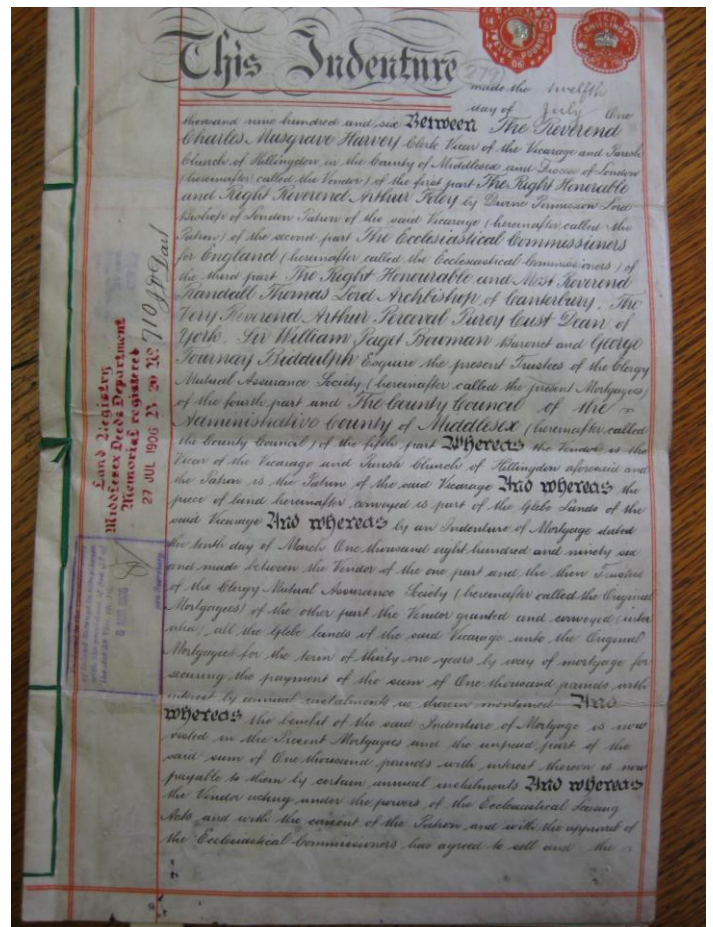 This Indenture
(279)
made the twelfth
day of July One
thousand nine hundred and six Between The Reverend
Charles Musgrave Harvey Clerk Vicar of the Vicarage and Parish
Church of Hillingdon in the County of Middlesex and Diocese of London
(hereinafter called the Vendor) of the first part The Right Honorable
and Right Reverend Arthur Foley by Divine Permission Lord
Bishop of London Patron of the said Vicarage (hereinafter called the
Patron) of the second part The Ecclesiastical Commissioners
for England (hereinafter called the Ecclesiastical Commissioners) of
the third part The Right Honourable and Most Reverend
Randall Thomas Lord Archbishop of Canterbury, The
Very Reverend Arthur Perceval Purey Cust Dean of
York, Sir William Paget Bowman Baronet and George
Tournay Biddulph Esquire the present Trustees of the Clergy
Mutual Assurance Society (hereinafter called the present Mortgagees)
of the fourth part and The County Council of the
Administrative County of Middlesex (hereinafter called
the County Council) of the fifth part Whereas the Vendor is the
Vicar of the Vicarage and Parish Church of Hillingdon aforesaid and
the Patron is the Patron of the said Vicarage And whereas the
piece of land hereinafter conveyed is part of the Glebe Lands of the
said Vicarage And whereas by an Indenture of Mortgage dated
the tenth day of March One thousand eight hundred and ninety six
and made between the Vendor of the one part and the then Trustees
of the Clergy Mutual Assurance Society (hereinafter called the Original
Mortgagees) of the other part the Vendor granted and conveyed (inter
alia) all the Glebe lands of the said Vicarage unto the Original
Mortgagees for the term of thirty one years by way of mortgage for
securing the payment of the sum of One thousand pounds with
interest by annual instalments as therein mentioned And
whereas the benefit of the said Indenture of Mortgage is now
vested in the Present Mortgagees and the unpaid part of the
said sum of One thousand pounds with interest thereon is now
payable to them by certain annual instalments And whereas
the Vendor acting under the powers of the Ecclesiastical Leasing
Acts and with the consent of the Patron and with the approval of
the Ecclesiastical Commissioners has agreed to sell and the
Land Registry
Middlesex Deeds Department
Memorial registered
27 JUL 1906 B 20 No 710